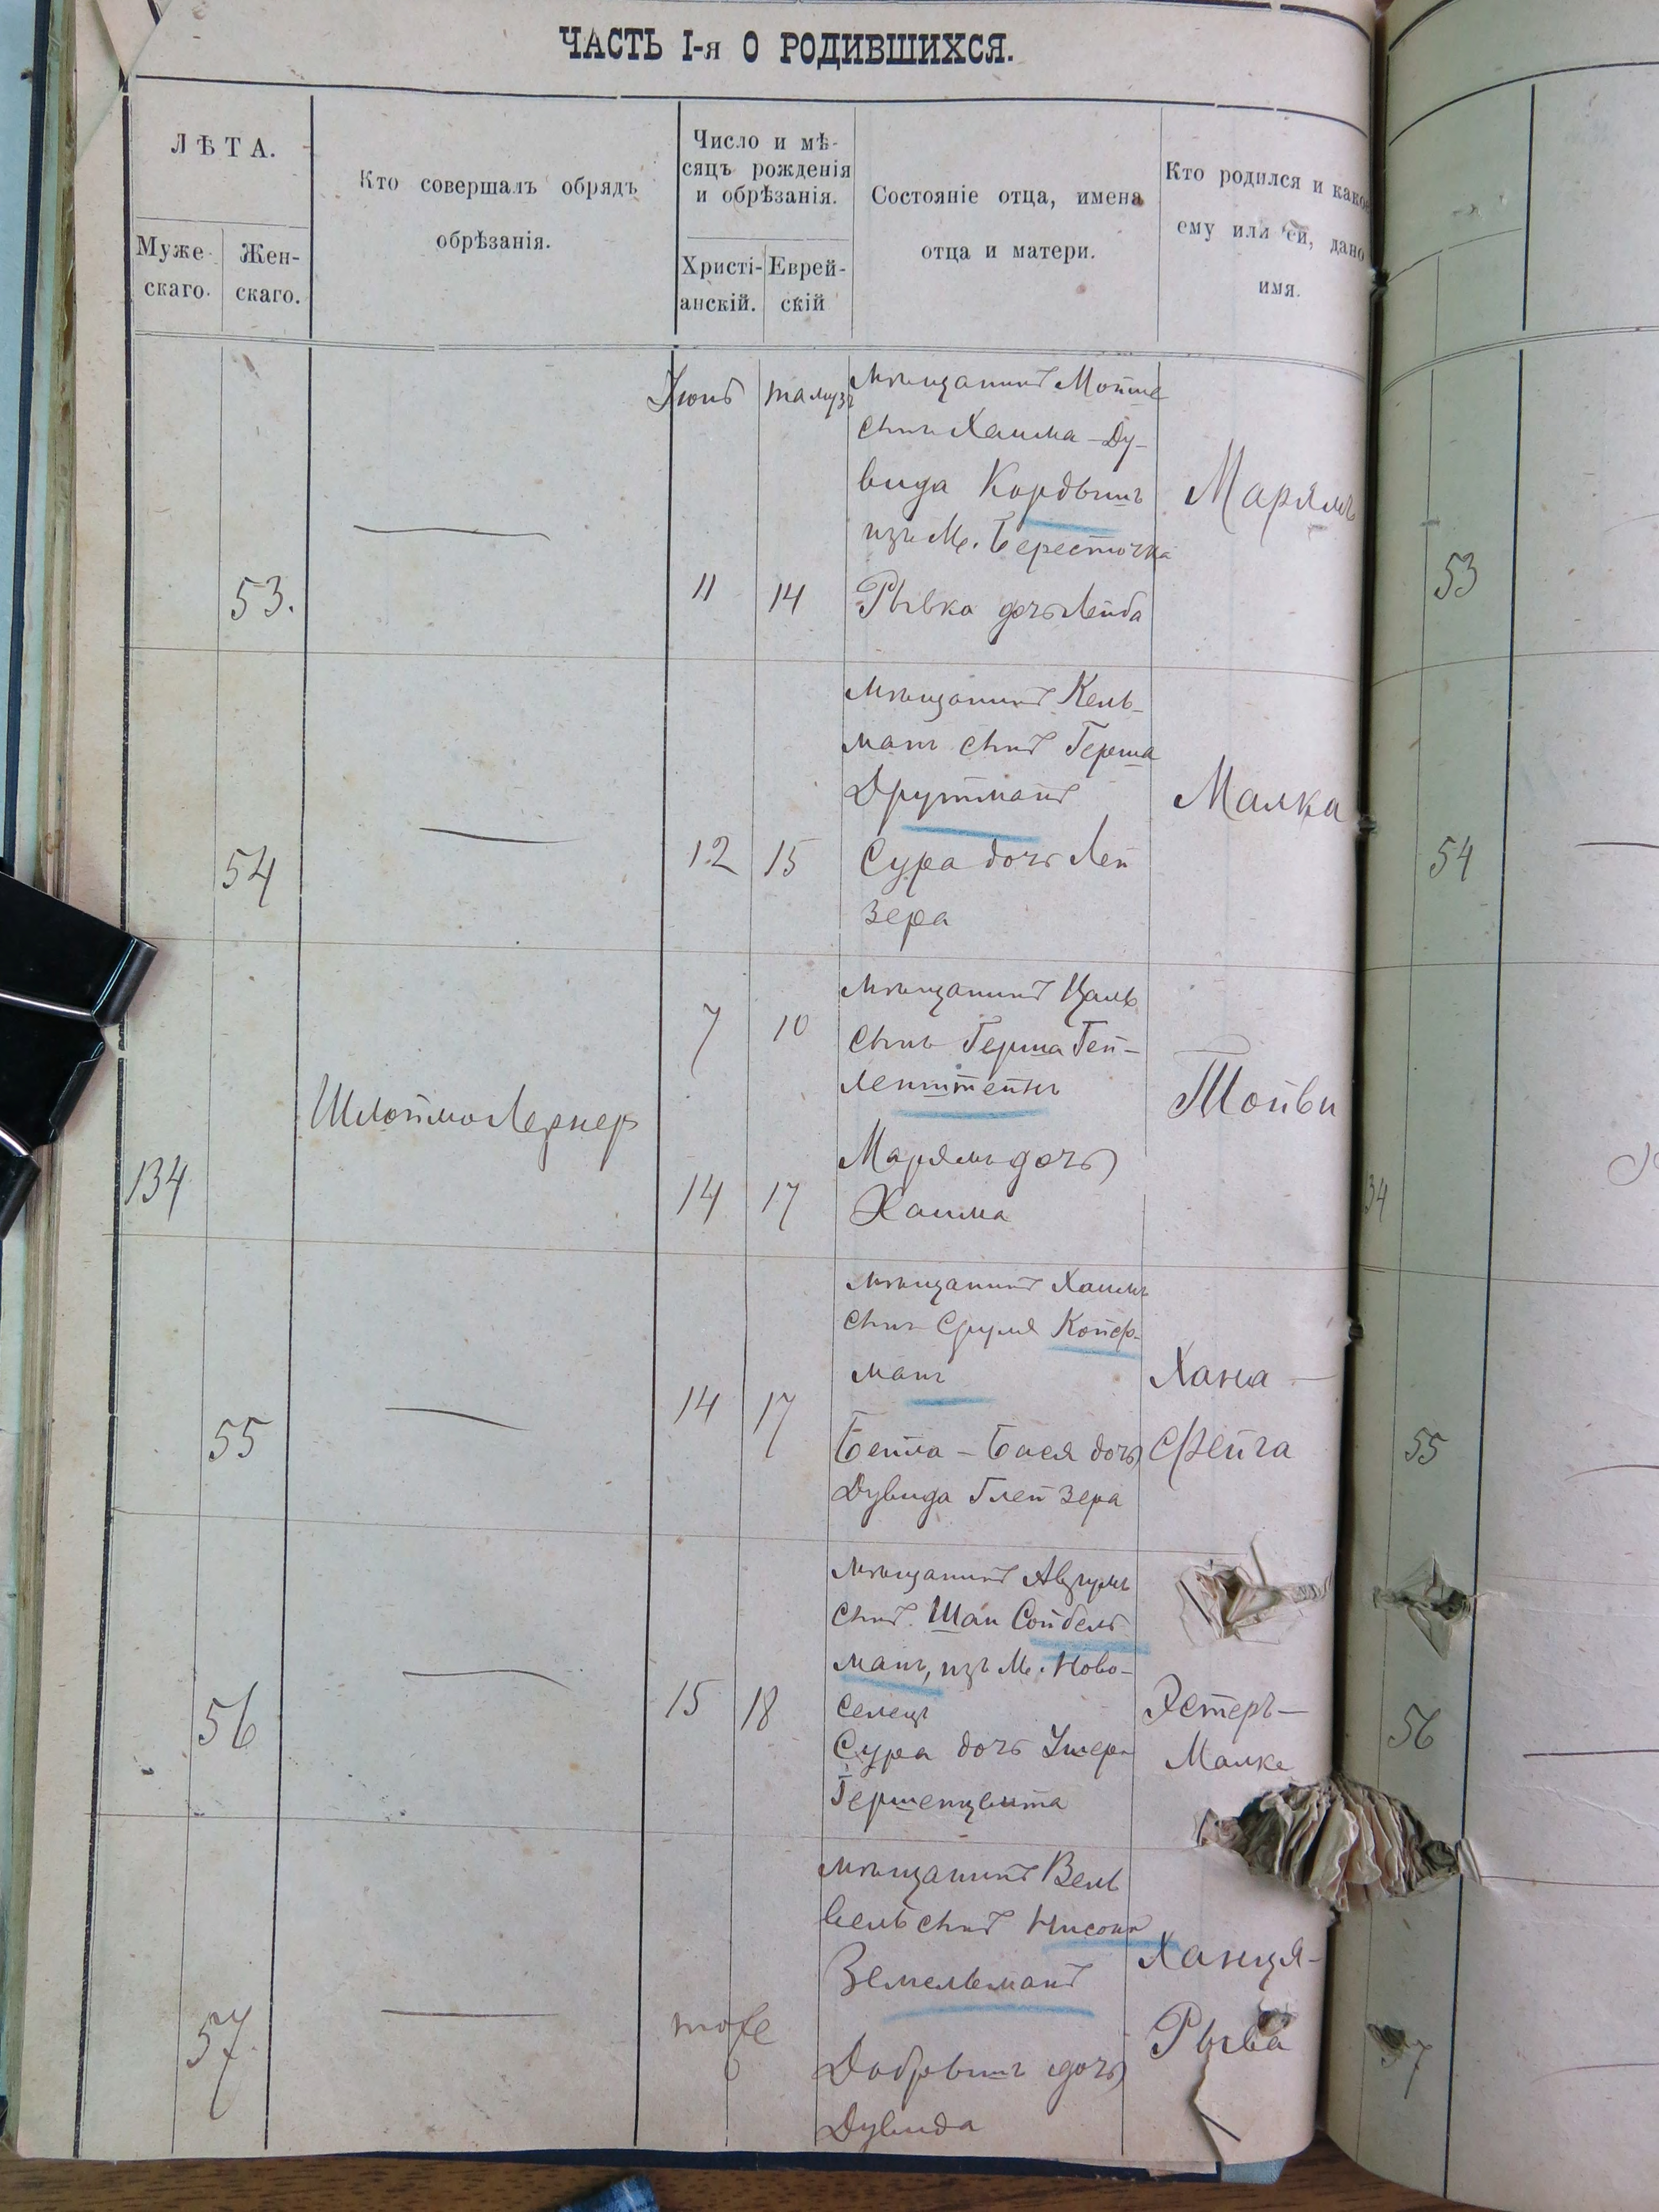 ЧАСТЬ I-я О РОДИВШИХСЯ.
ЛѢТА.
Муже-
скаго.
Жен-
скаго.
Кто совершалъ обрядъ
обрѣзанія.
Число и мѣ-
сяцъ рожденія
и обрѣзанія.
Христі-
анскій.
Еврей-
скій
Состояніе отца, имена
отца и матери.
Кто родился и какое
ему или ей, дано
имя.
Іюнь
тамузъ
53.
11
14
мѣщанинъ Мойше
сынъ Хаима-Ду-
вида Кордышъ
изъ М. Берестечка
Рывка дочь Лейба
Марямъ
53
54
12
15
мѣщанинъ Кель-
манъ сынъ Герша
Друтманъ
Сура дочь Лей
зера
Малка
54
134
Шлойма Лернер
7
10
14
17
мѣщанинъ Цаль
сынъ Герша Гей-
ленштейнъ
Марямъ дочь
Хаима
Тойви
34
55
14
17
мѣщанинъ Хаимъ
сынъ Сруля Койф-
манъ
Бейла-Бася дочь
Дувида Глейзера
Хана-
Фейга
55
56
15
18
мѣщанинъ Аврумъ
сынъ Шаи Сойбель
манъ, изъ М. Ново-
селецъ
Сура дочь Ушера
Гершенцвита
Эстеръ-
Малке
56
57.
тоже
мѣщанинъ Вель
вель сынъ Нисона
Земельманъ
Добрышъ дочь
Дувида
Ханця-
Рыва
57